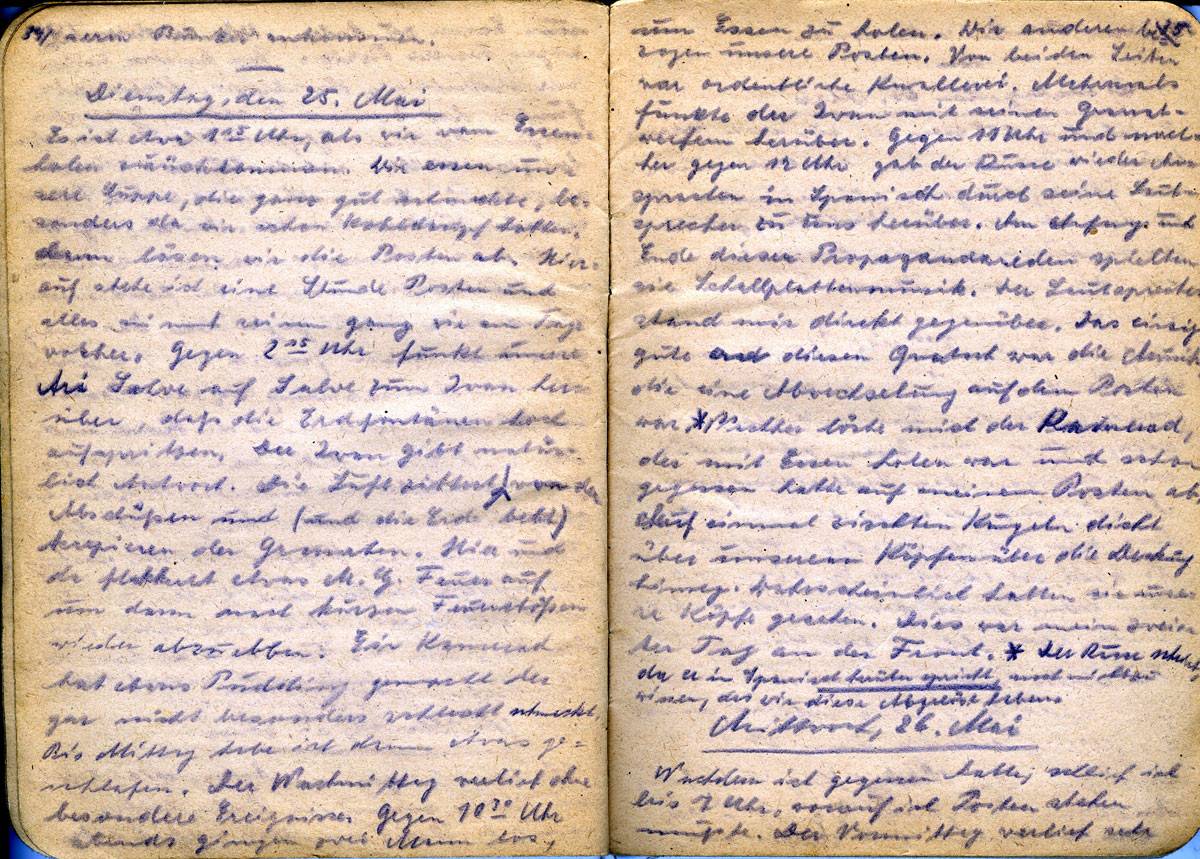 34/ serm Bunker ankommen.
Dienstag, den 25. Mai
Es ist etwa 1 Uhr, als wir vom Essen-
holen zurückkommen. Wir essen un-
sere Suppe, die ganz gut schmeckte, be-
sonders da wir schon Kohldampf hatten.
Dann lösen wir die Posten ab. Hier-
auf stehe ich eine Stunde Posten und
alles nimmt seinen gang wie am Tage
vorher. Gegen 2 Uhr funkt unsere
Ari Salve auf Salve zum Ivan her-
über, daß die Erdfontänen hoch
aufspritzen. Der Ivan gibt natür-
lich Antwort. Die Luft zittert von den
Abschüßen und (und die Erde bebt)
krepieren der Granaten. Hie und
da flakkert etwas M. G. Feuer auf
um dann nach kurzen Feuerstößen
wieder abzuebben. Ein Kamerad
hat etwas Pudding gemacht der
gar nicht besonders schlecht schmeckt.
Bis Mittag habe ich dann etwas ge-
schlafen. Der Nachmittag verlief ohne
besondere Ereignisse. Gegen 10 30 Uhr
abends gingen zwei Mann los,
35
um Essen zu holen. Wir anderen be-
zogen unsere Posten. Von beiden Seiten
war ordentliche Knallerei. Mehrmals
funkte der Ivan mit seinen Granat-
werfern herüber. Gegen 11 Uhr und nach-
her gegen 12 Uhr gab der Russe wieder An-
sprachen in Spanisch durch seine Laut-
sprecher zu uns herüber. Am Anfang und
Ende dieser Propagandareden spielten
sie Schallplattenmusik. Der Lautsprecher
stand mir direkt gegenüber. Das einzig
gute an diesen Quatsch war die Musik,
die eine Abwechselung auf dem Posten
war. * Nachher löste mich der Kamerad,
der mit Essen holen war und schon
gegessen hatte auf meinem Posten ab.
Auf einmal zischten Kugeln dicht
über unseren Köpfen über die Deckung
hinweg. Wahrscheinlich hatten sie unse-
re Köpfe gesehen. Dies war mein zwei-
ter Tag an der Front. * Der Russe scheint,
da er in Spanisch herüber spricht, noch nicht zu
wissen, das wir diese Abgelöst haben
Mittwoch, 26. Mai
Nachdem ich gegessen hatte, schlief ich
bis 7 Uhr, worauf ich Posten stehen
mußte. Der Vormittag verlief sehr